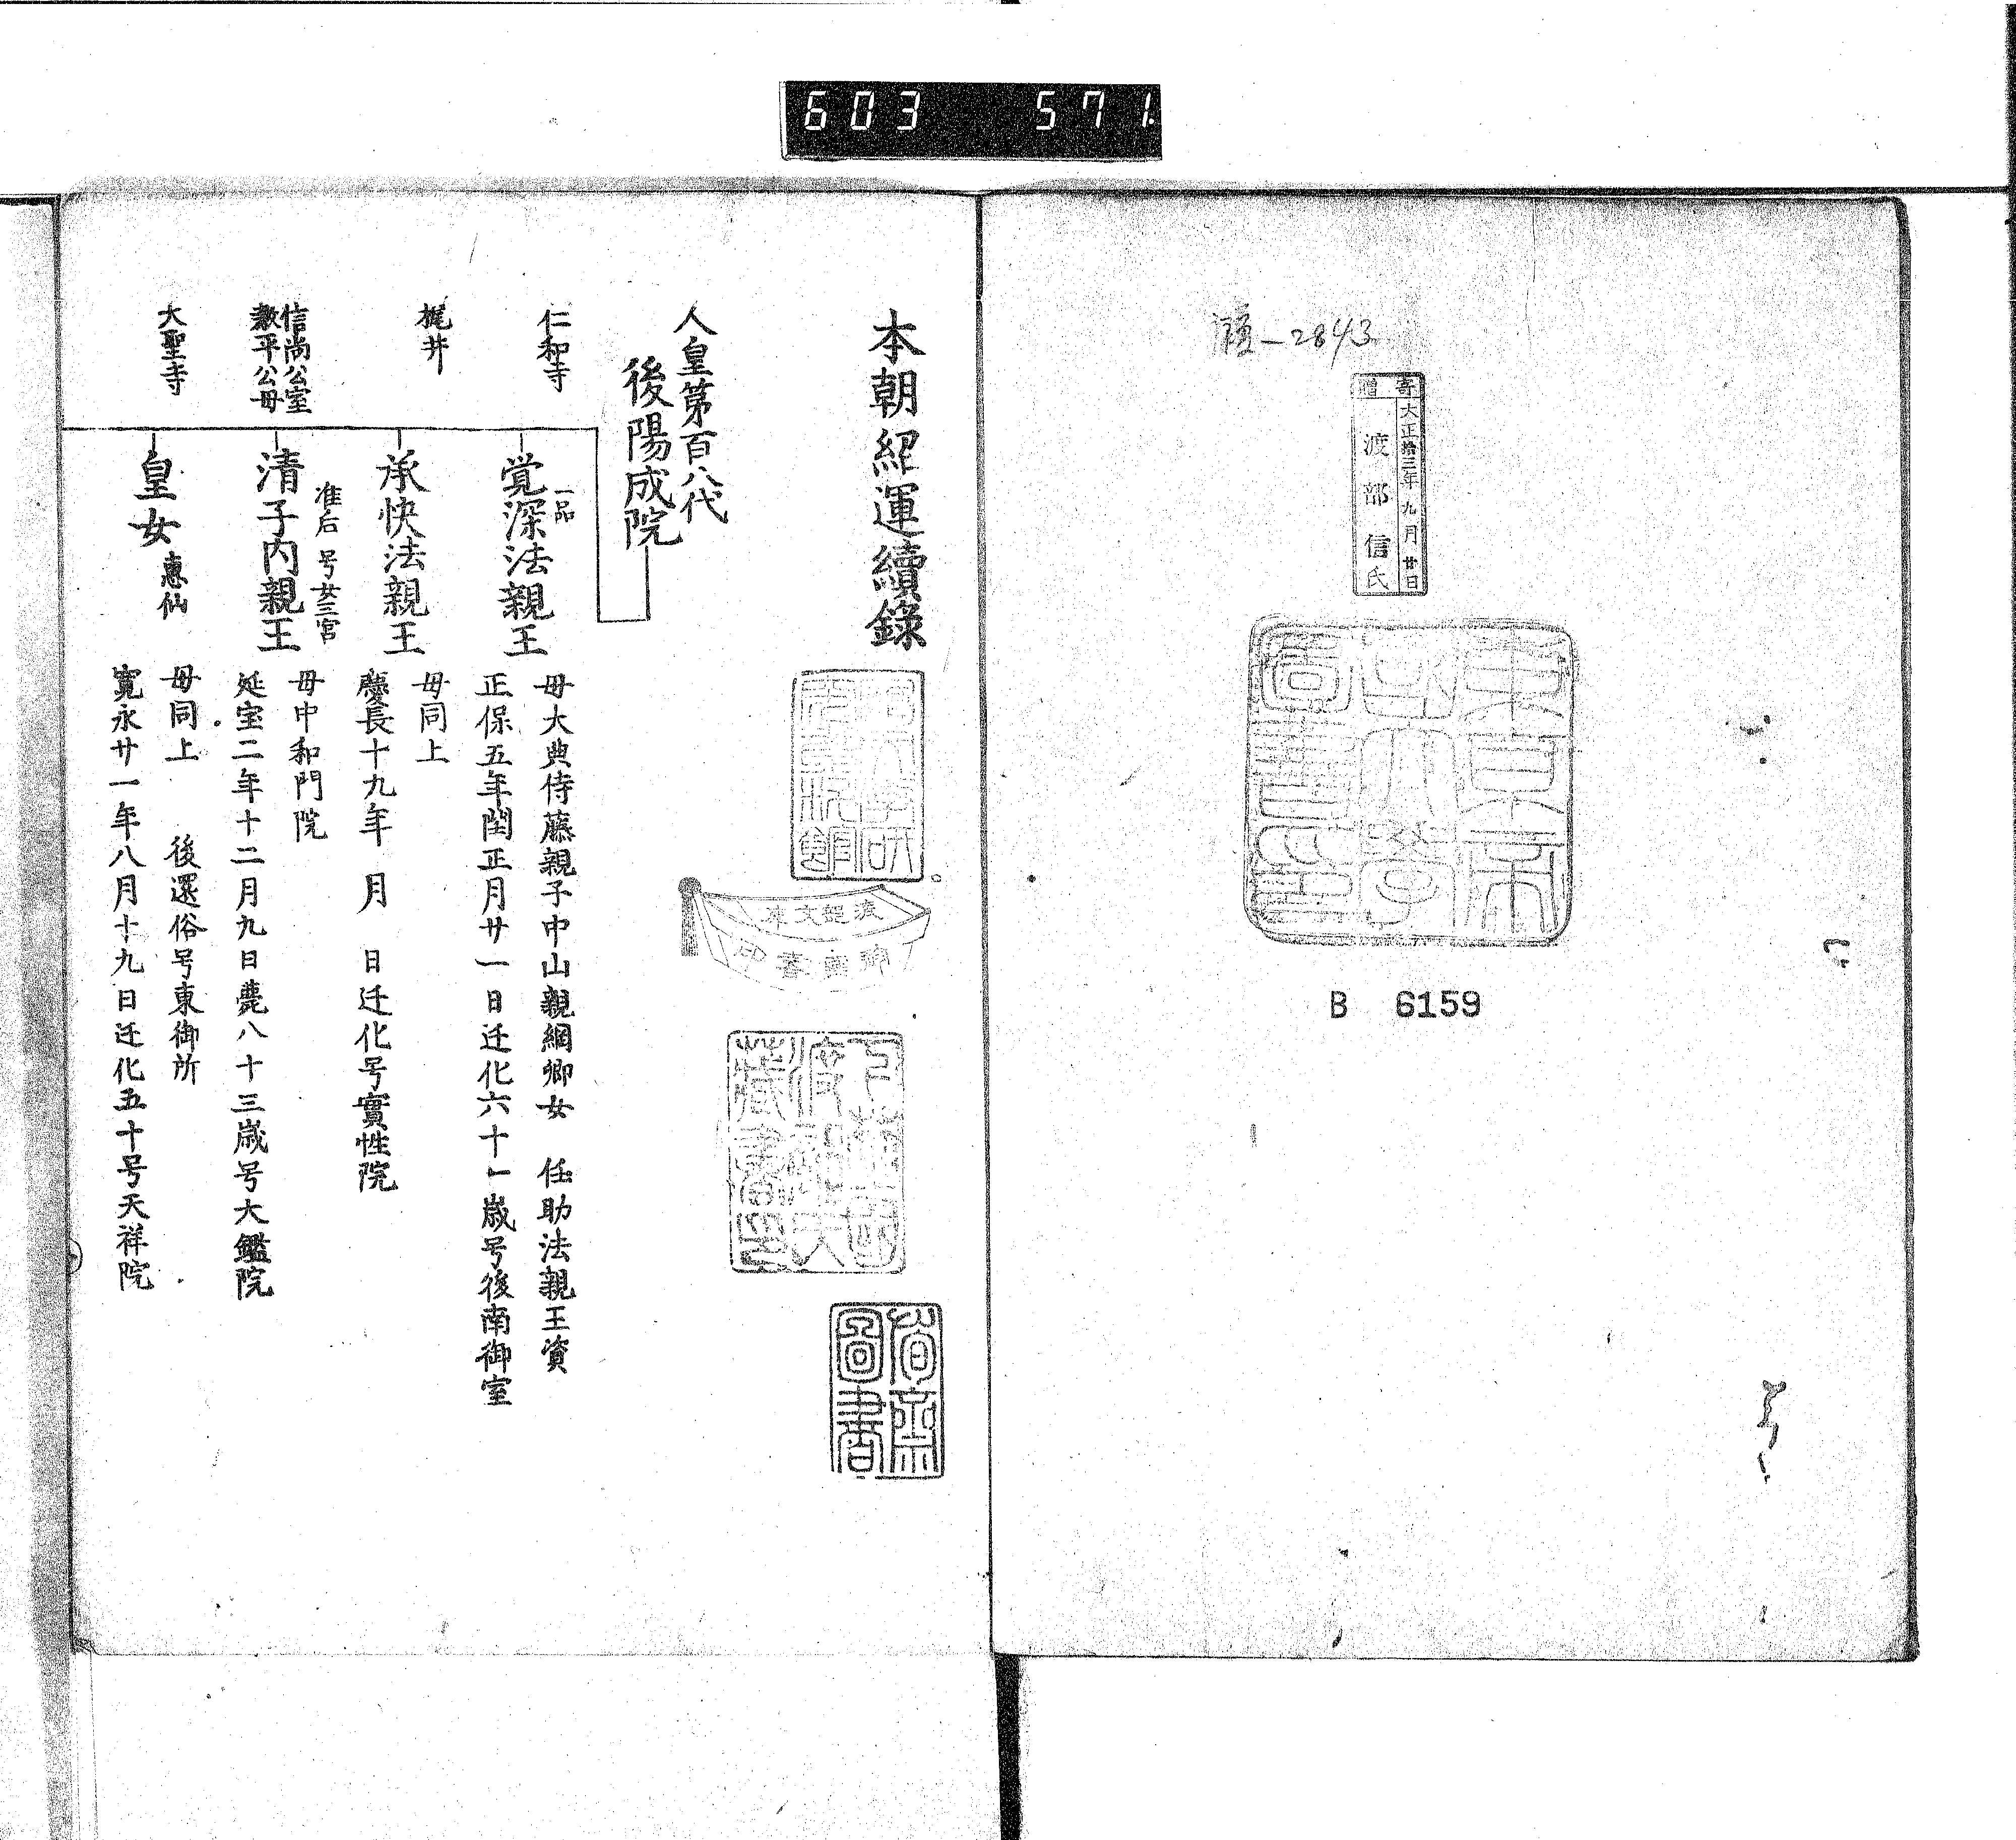 603 571.
寄贈
大正拾三年九月廿日
渡部信氏
東京帝
國大學
圖書印
B 6159
本朝紹運續錄
人皇第百八代
後陽成院
仁和寺
一品
覚深法親王
母大典侍藤親子中山親綱卿女 任助法親王資
正保五年閏正月廿一日迁化六十一歳号後南御室
梶井
承快法親王
母同上
慶長十九年 月 日迁化号實性院
信尚公室
教平公母
准后 号女三宮
清子内親王
母中和門院
延宝二年十二月九日薨八十三歳号大鑑院
大聖寺
皇女 恵仙
母同上 後還俗号東御所
寛永廿一年八月十九日迁化五十号天祥院
圖書